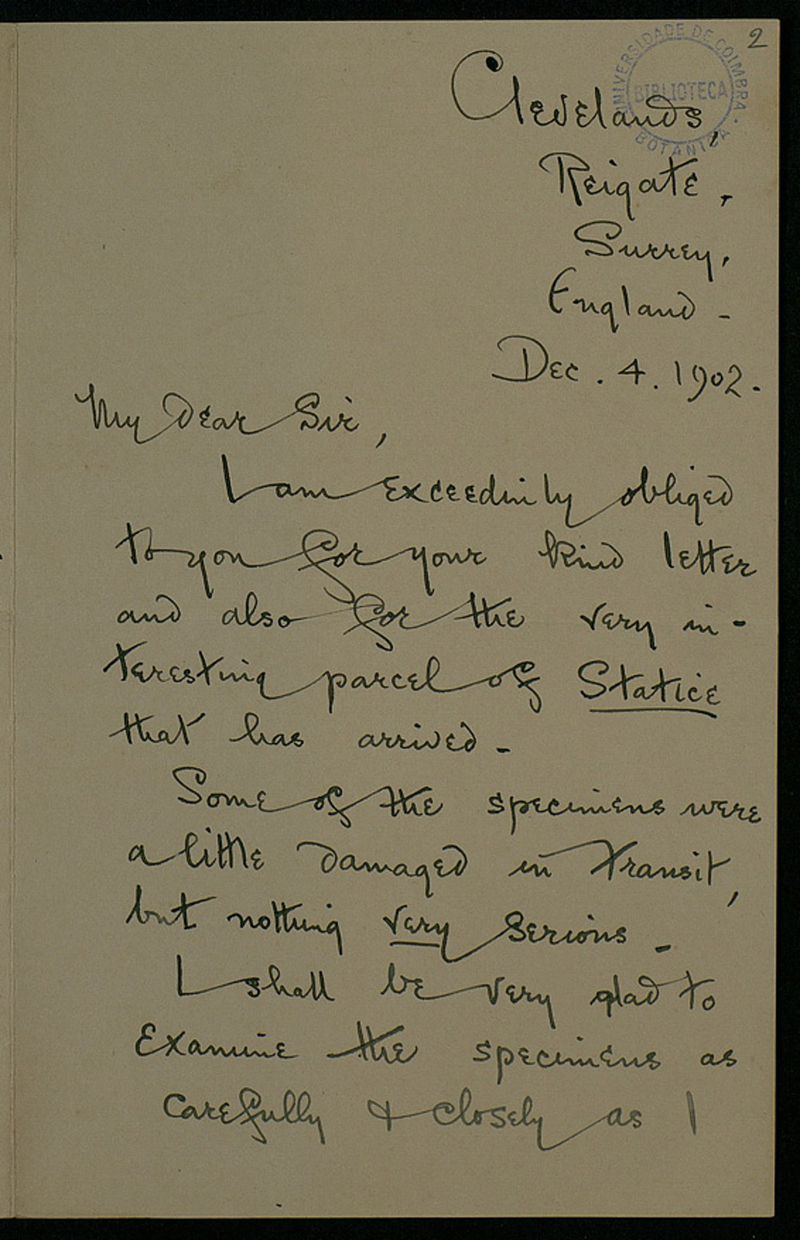 2
UNIVERSIDADE DE COIMBRA
BIBLIOTECA
BOTANICA
Clevelands,
Reigate,
Surrey,
England -
Dec. 4. 1902.
My dear Sir,
I am exceedinly obliged
to you for your kind letter
and also for the very in-
teresting parcel of Statice
that has arrived -
Some of the specimens were
a little damaged in transit,
but nothing very serious -
I shall be very glad to
examine the specimens as
carefully & closely as I